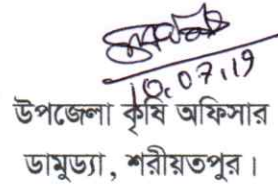 10.07.19
উপজেলা কৃষি অফিসার
ডামুড্যা, শরীয়তপুর।